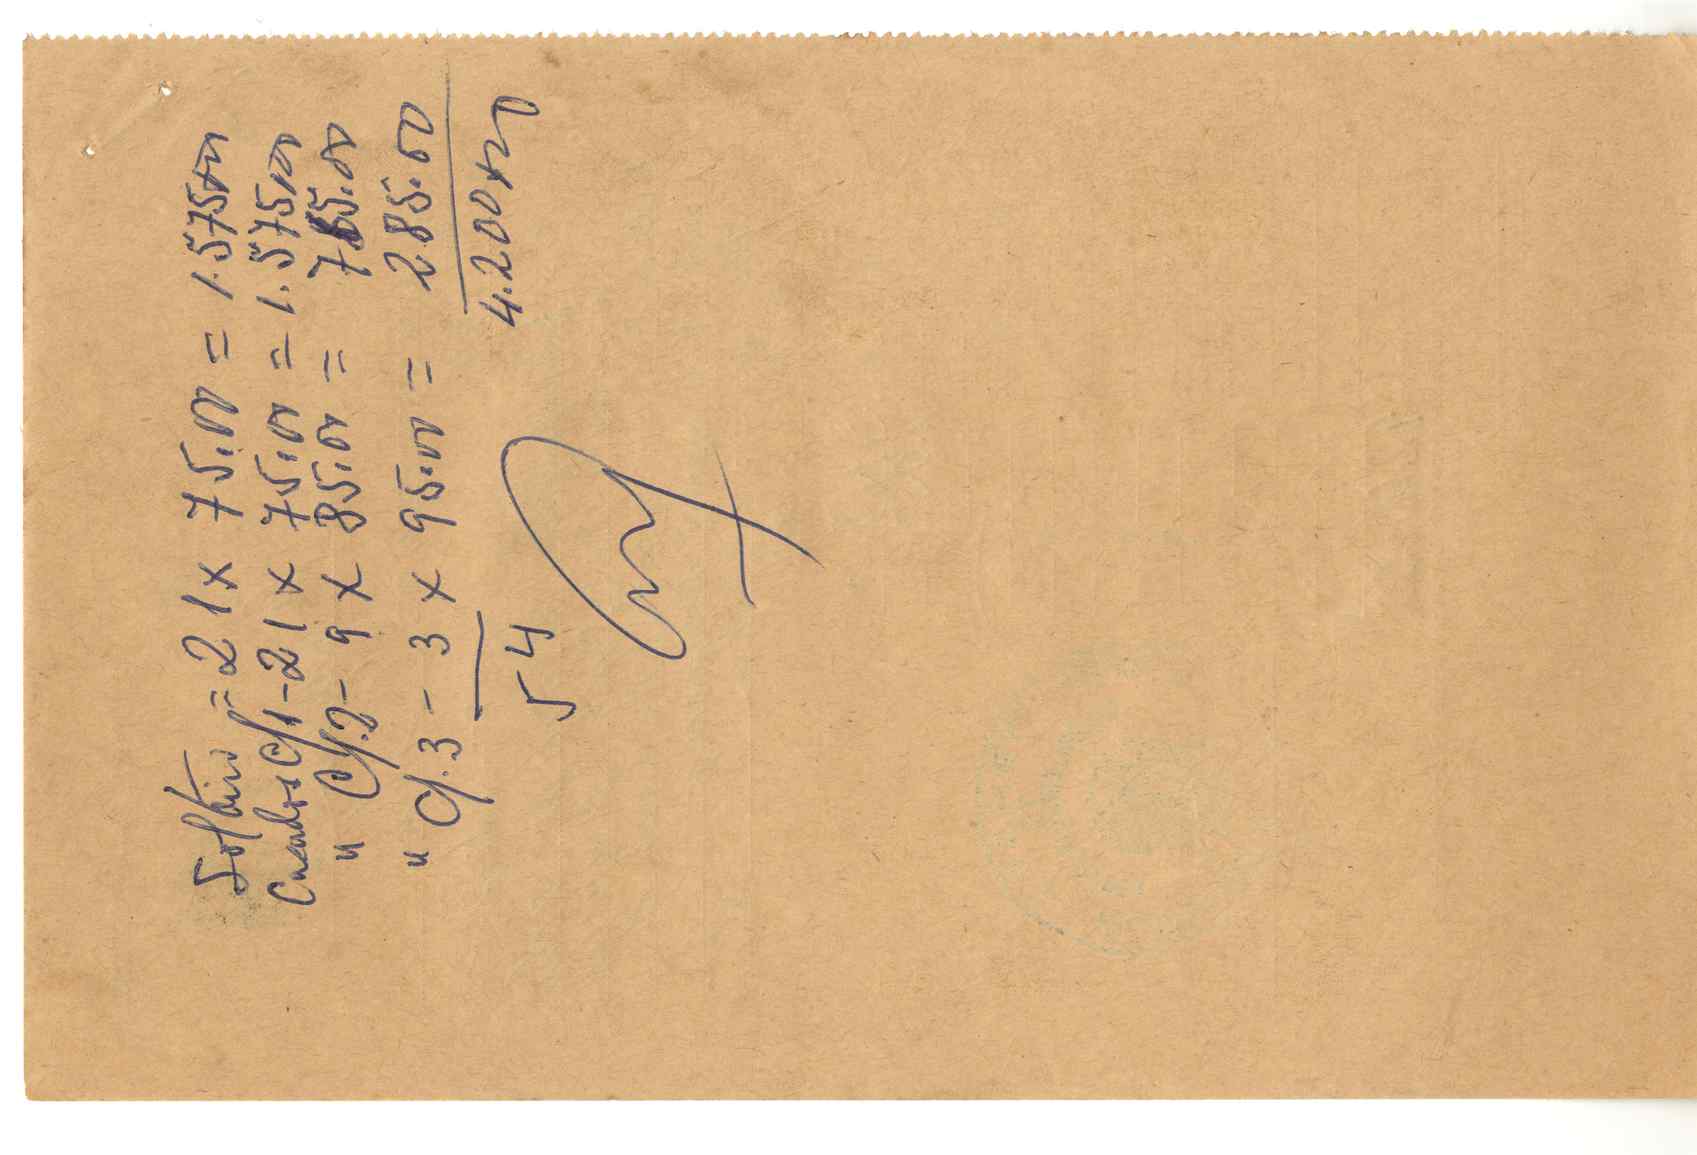 Soltain = 21 x 75.00 = 1.575,00
C/1 - 21 x 75.00 = 1.575,00
" C/2 - 9 x 85.00 = 765.00
" C/.3 - 3 x 95.00 = 285.00
54 4.200,00